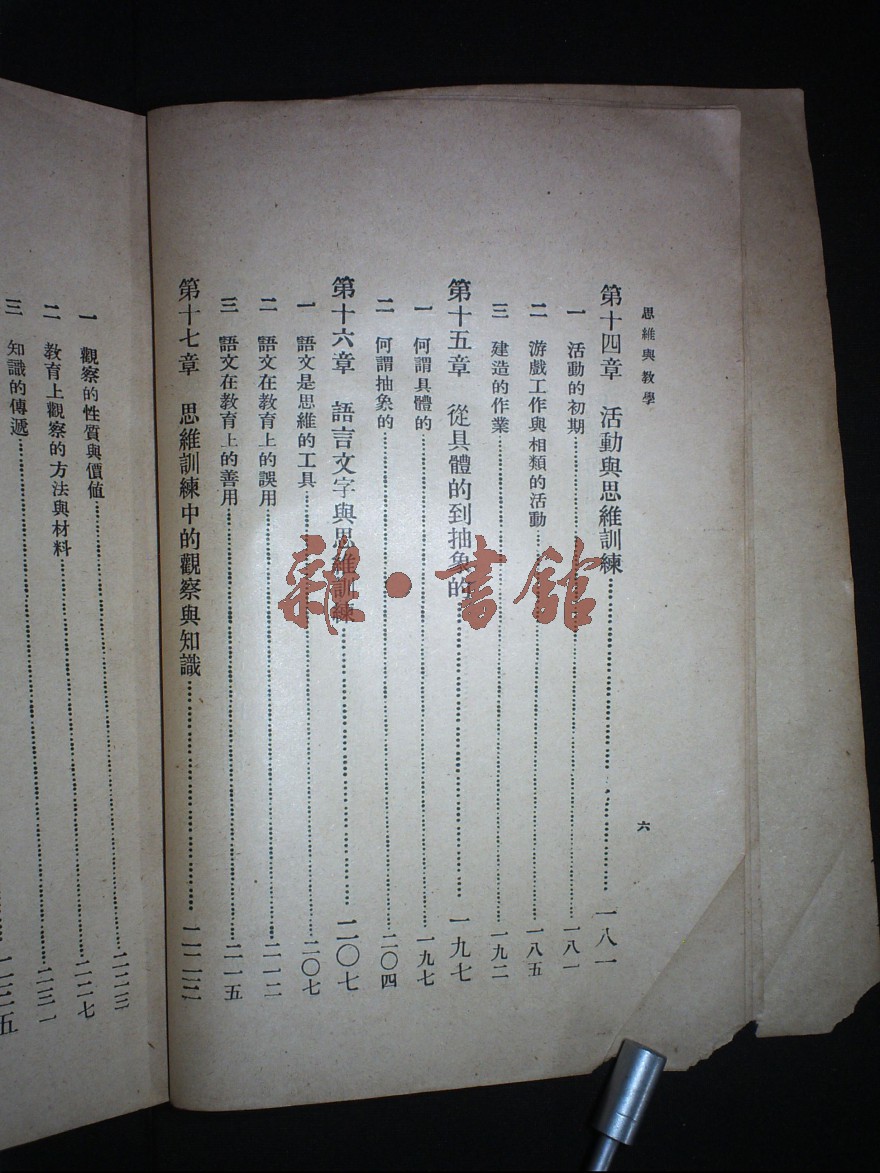 思維與教學
六
第十四章 活動與思維訓練……一八一
一 活動的初期……一八一
二 游戲工作與相類的活動……一八五
三 建造的作業……一九二
第十五章 從具體的到抽象的……一九七
一 何謂具體的……一九七
二 何謂抽象的……二〇四
第十六章 語言文字與思維訓練……二〇七
一 語文是思維的工具……二〇七
二 語文在教育上的誤用……二一二
三 語文在教育上的善用……二一五
第十七章 思維訓練中的觀察與知識……二二三
一 觀察的性質與價値……二二三
二 教育上觀察的方法與材料……二二七
三 知識的傳遞……二三一
二三五
雜·書館